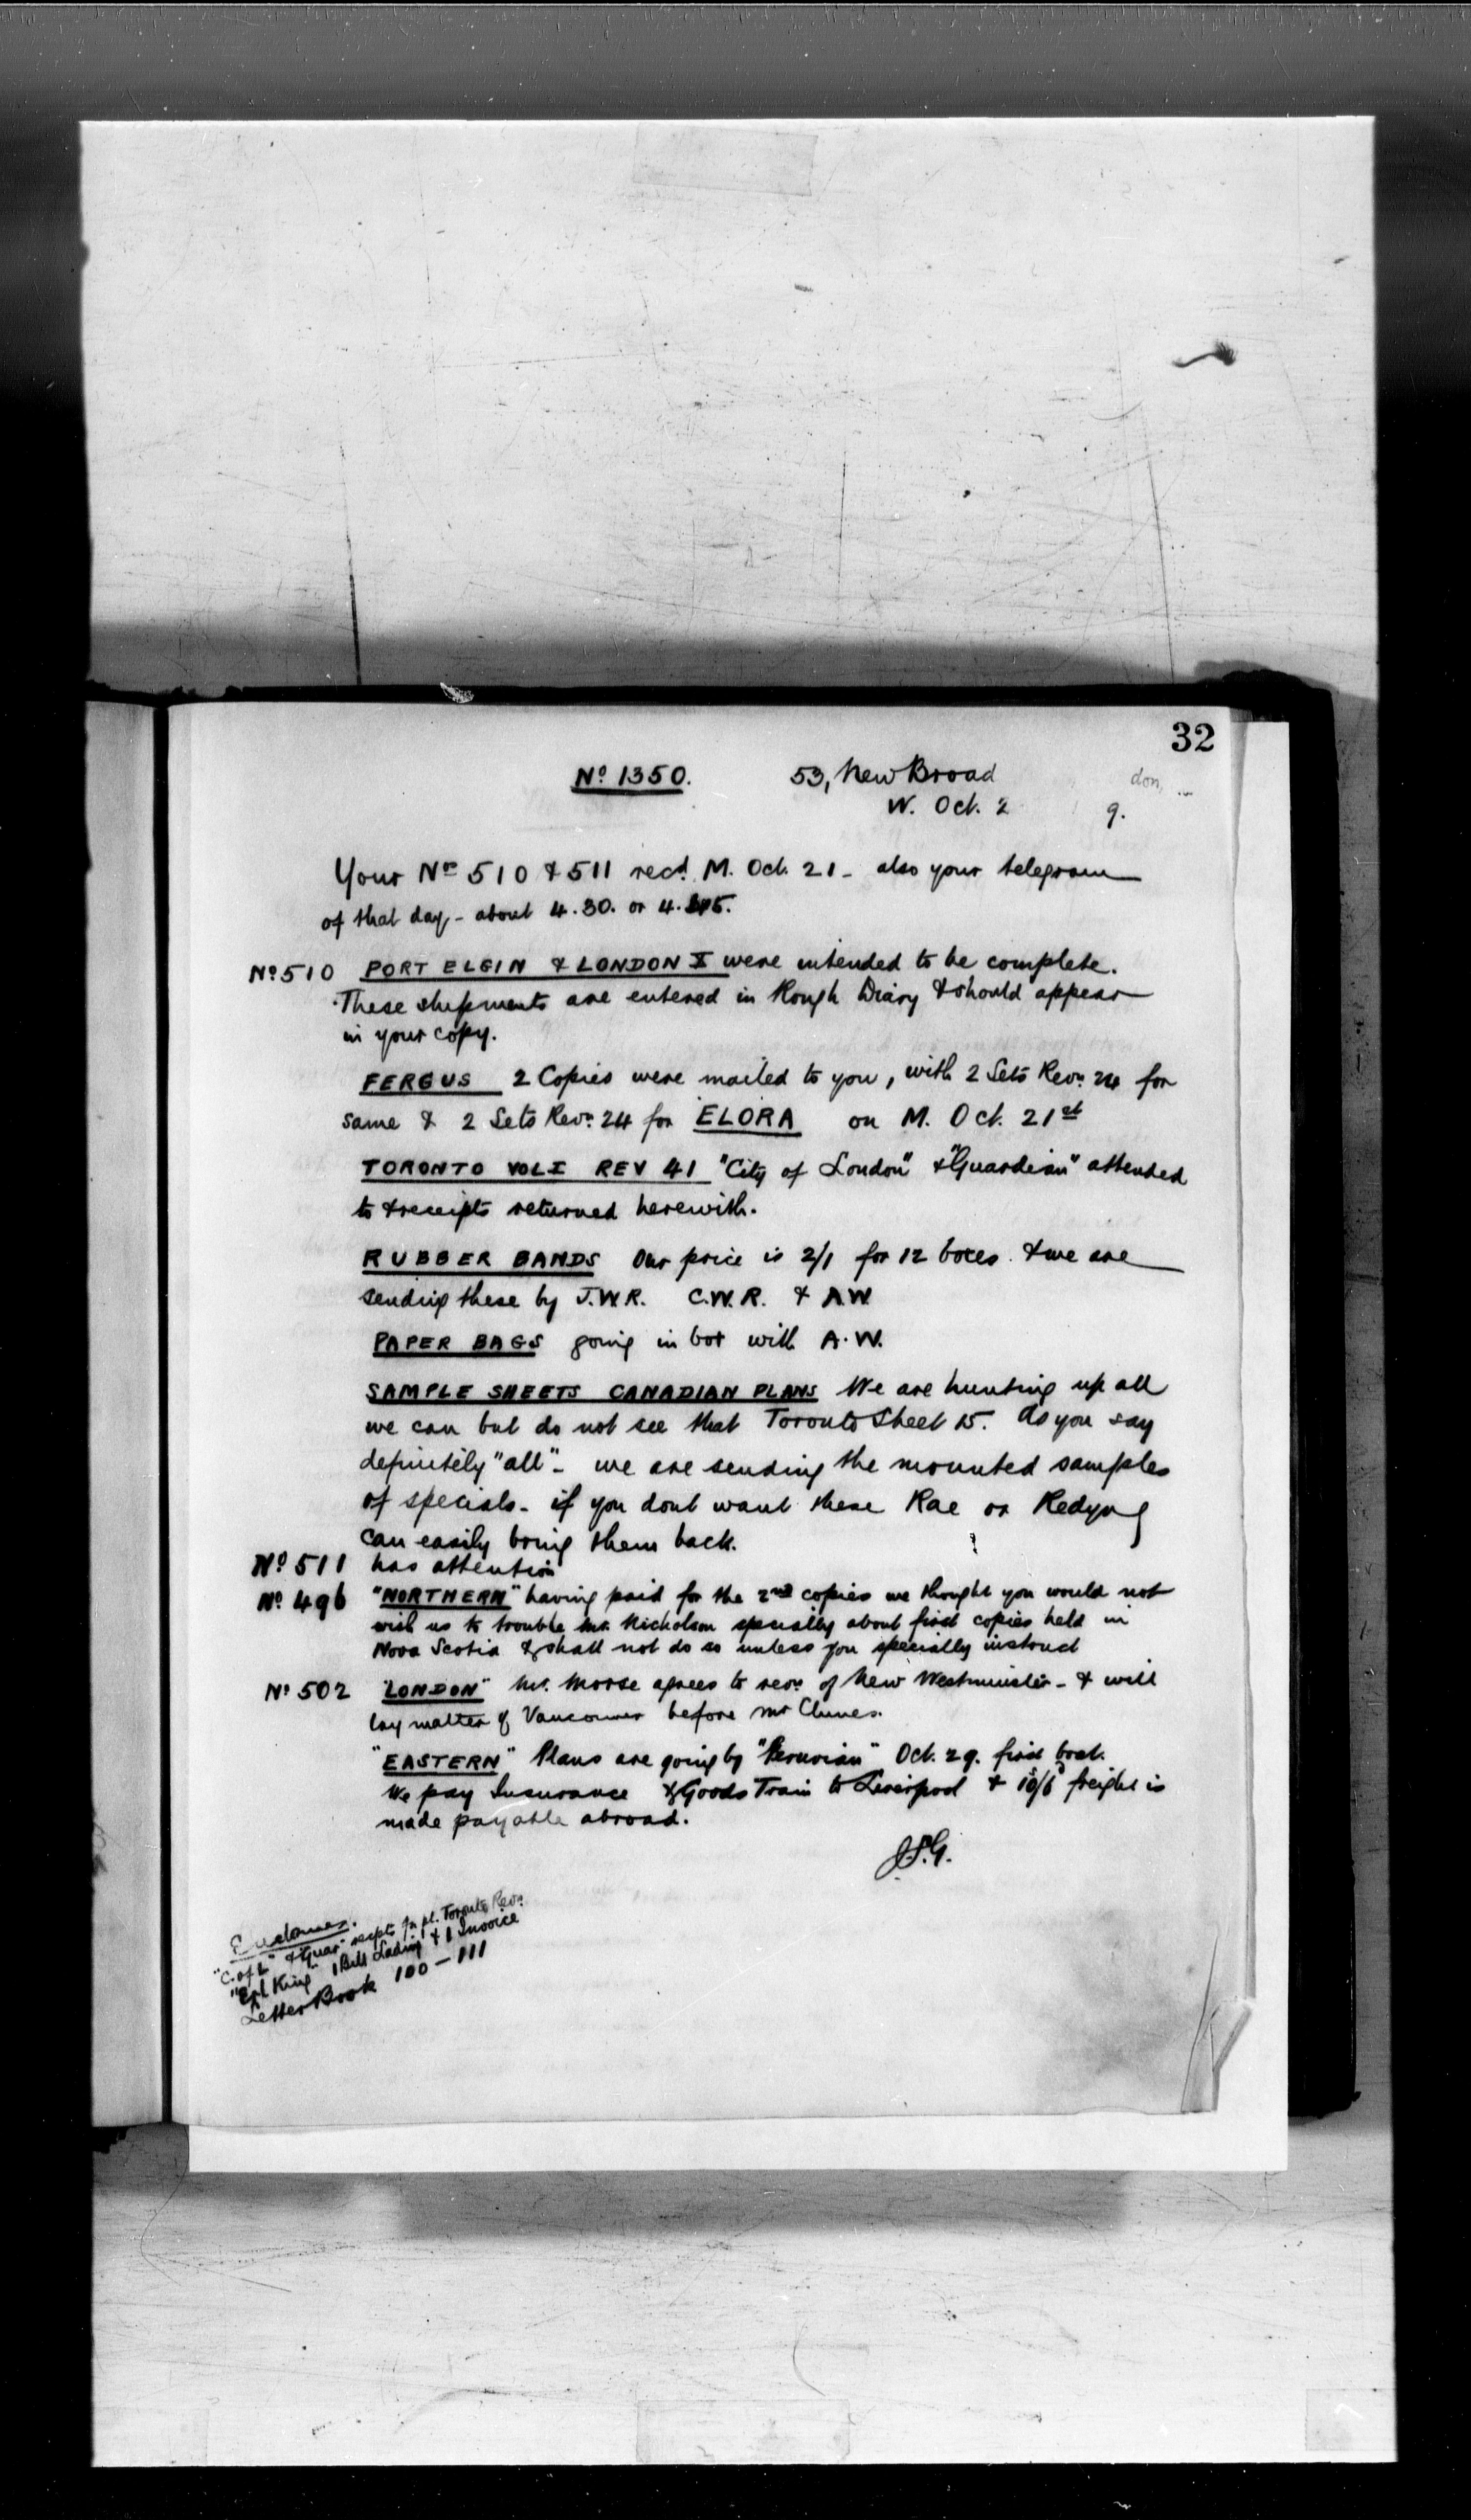 32
No 1350. 53, New Broad
W. Oct. 2 9.
Your Nos 510 & 511 recd. M. Oct. 21 - also your telegram
of that day - about 4.30. or 4.45.
No 510 PORT ELGIN & LONDON X were intended to be complete.
These shipments are entered in Rough Diary & should appear
in your copy.
FERGUS 2 Copies were mailed to you, with 2 Sets Revn. 24 for
same & 2 Sets Revn. 24 for ELORA on M. Oct. 21st
TORONTO VOL I REV 41 "City of London" & "Guardian" attended
to & receipts returned herewith.
RUBBER BANDS Our price is 2/1 for 12 boxes. & we are
sending these by J.W.R. C.W.R. & A.W.
PAPER BAGS going in box with A.W.
SAMPLE SHEETS CANADIAN PLANS We are hunting up all
we can but do not see that Toronto Sheet 15. As you say
definitely "all" - we are sending the mounted samples
of specials - if you dont want these Rae or
can easily bring them back.
No 511 has attention
No 496 "NORTHERN" having paid for the 2nd copies we thought you would not
wish us to trouble Mr. Nicholson specially about first copies held in
Nova Scotia & shall not do so unless you specially instruct
No 502 "LONDON" Mr. Morse agrees to revn. of New Westminster - & will
lay matter of Vancouver before Mr Clunes.
"EASTERN" Plans are going by "Peruvian" Oct. 29. first boat.
We pay Insurance & Goods Train to Liverpool & 10/6 freight is
made payable abroad.
J.P.G.
Enclosures.
"C. of L" & "Guar" recpts for pl. Toronto Revn.
"Erl King" 1 Bill Lading & 1 Invoice
Letter Book 100 - 111